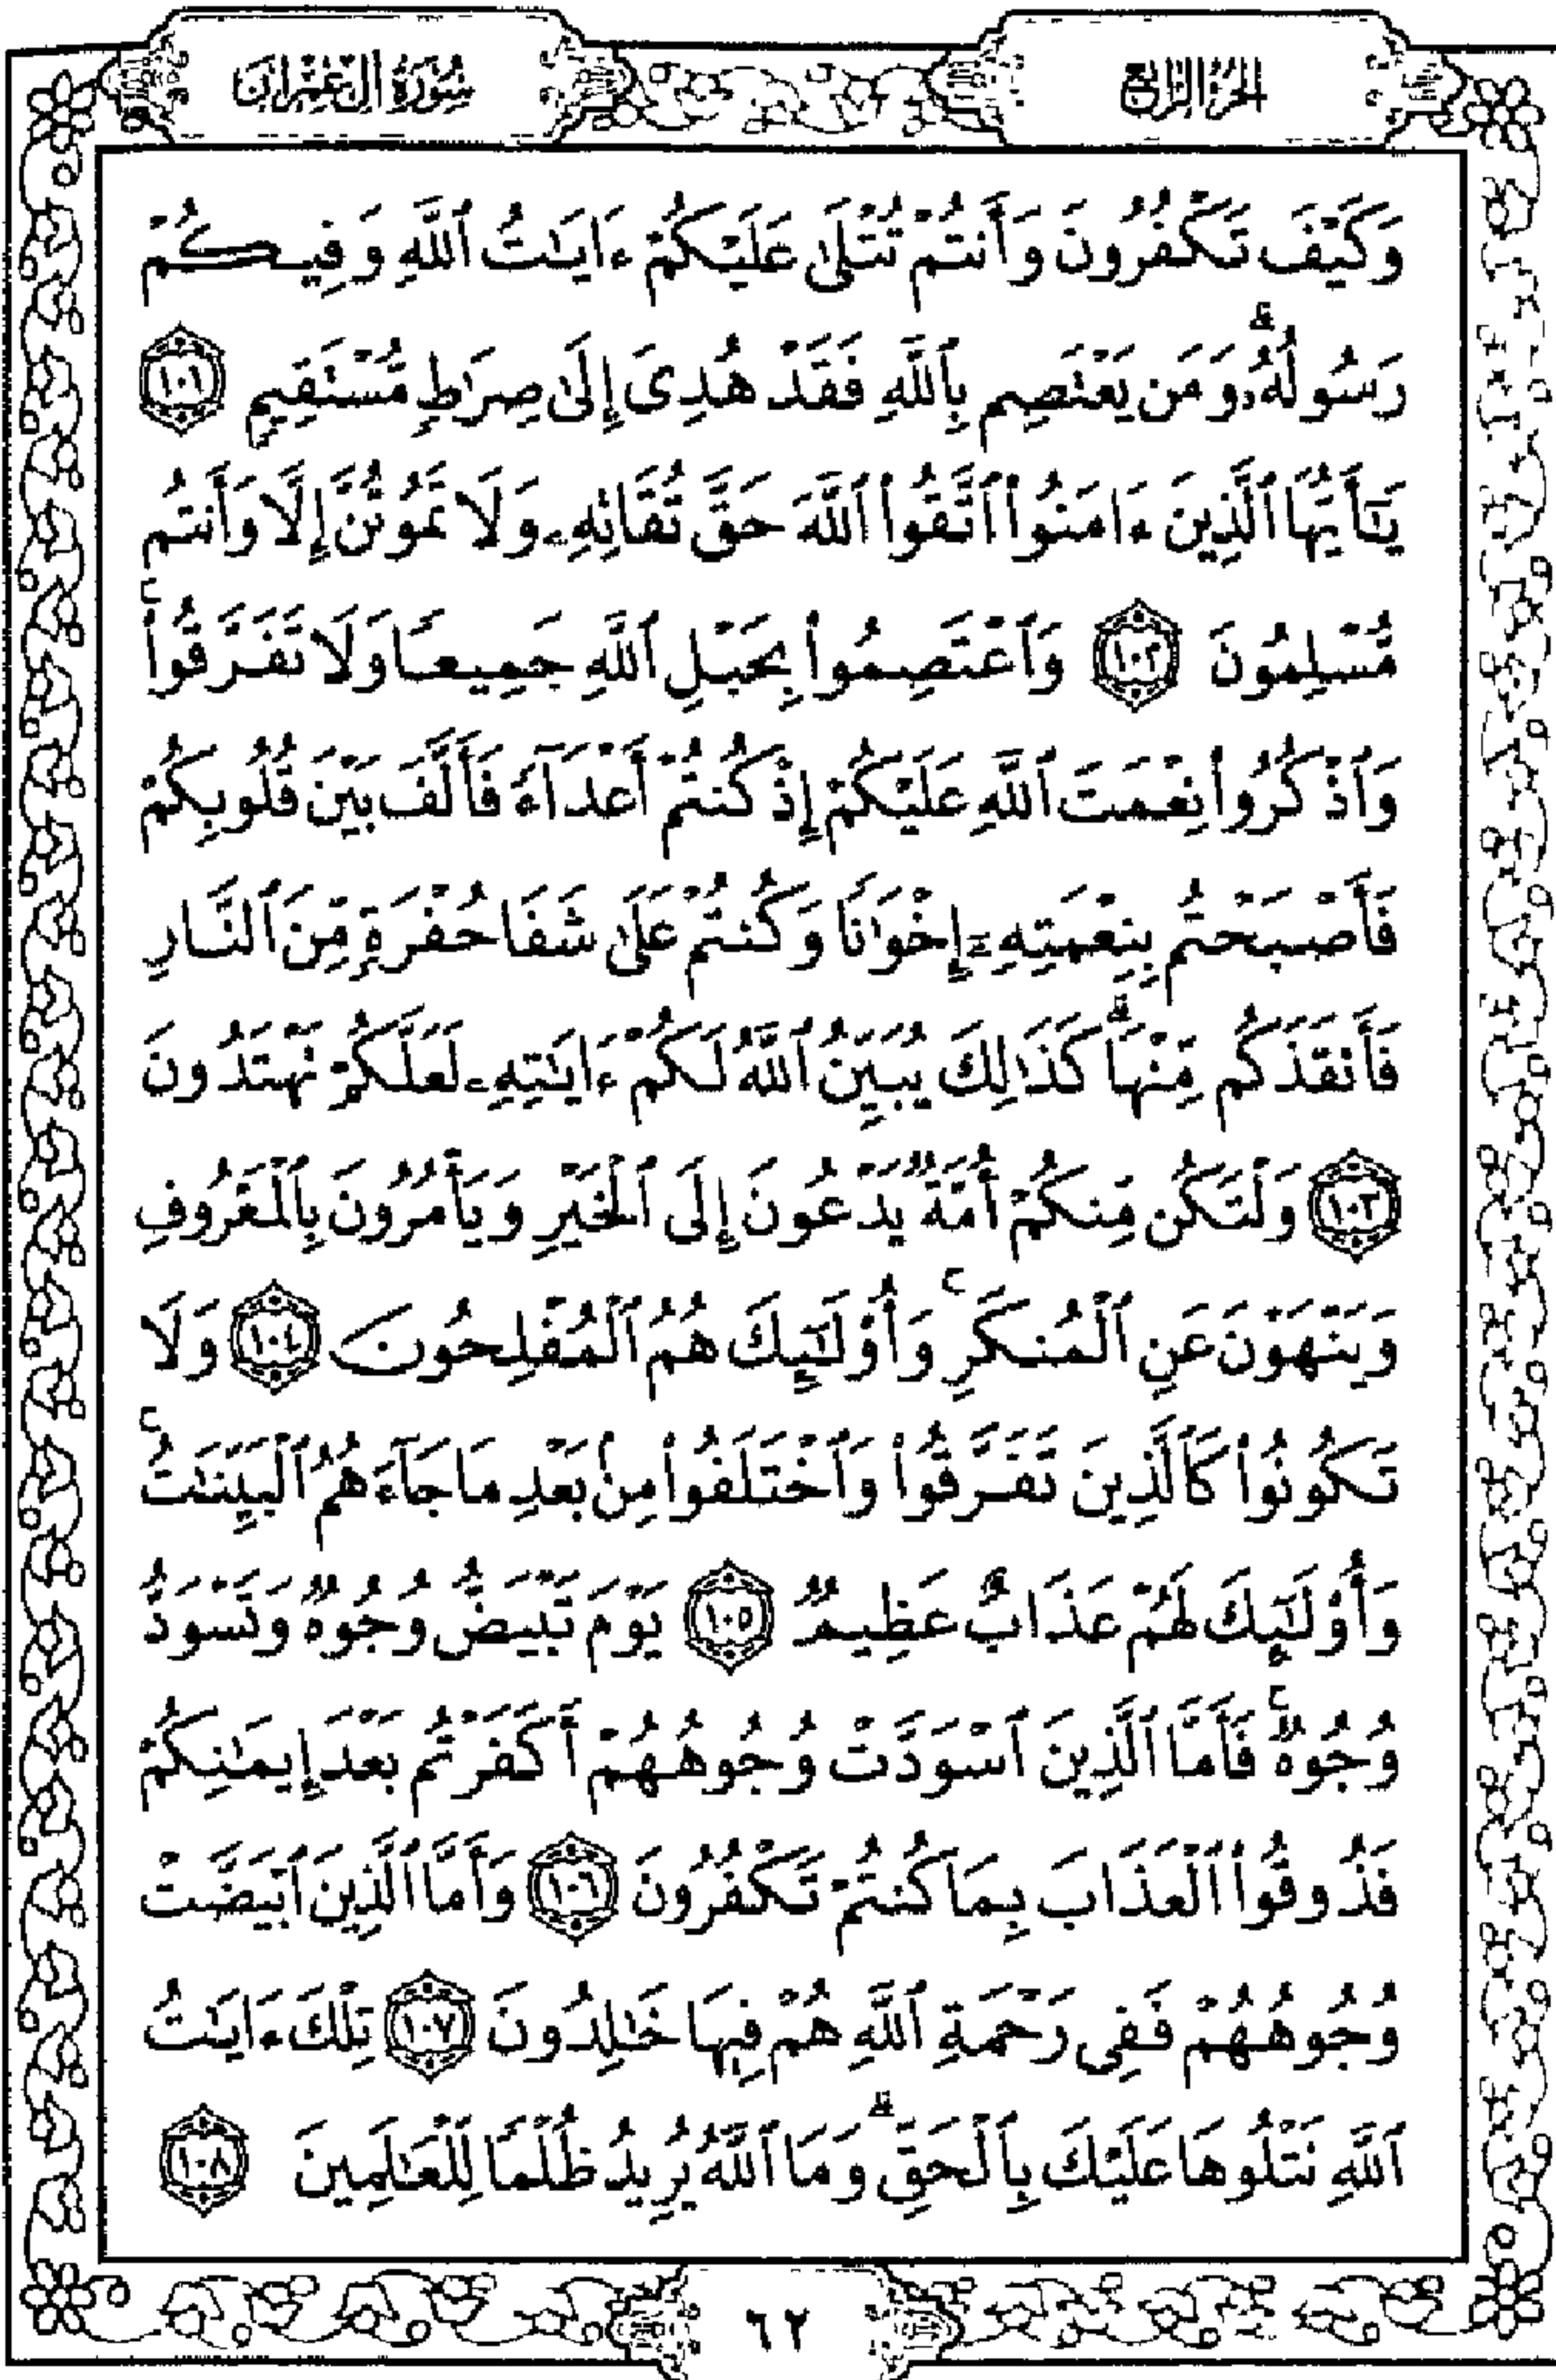 الجزء الرابع
سورة آل عمران
وَكَيْفَ تَكْفُرُونَ وَأَنتُمْ تُتْلَىٰ عَلَيْكُمْ ءَايَٰتُ ٱللَّهِ وَفِيكُمْ
رَسُولُهُۥ ۗ وَمَن يَعْتَصِم بِٱللَّهِ فَقَدْ هُدِىَ إِلَىٰ صِرَٰطٍ مُّسْتَقِيمٍ ١٠١
يَٰٓأَيُّهَا ٱلَّذِينَ ءَامَنُوا۟ ٱتَّقُوا۟ ٱللَّهَ حَقَّ تُقَاتِهِۦ وَلَا تَمُوتُنَّ إِلَّا وَأَنتُم
مُّسْلِمُونَ ١٠٢ وَٱعْتَصِمُوا۟ بِحَبْلِ ٱللَّهِ جَمِيعًا وَلَا تَفَرَّقُوا۟ ۚ
وَٱذْكُرُوا۟ نِعْمَتَ ٱللَّهِ عَلَيْكُمْ إِذْ كُنتُمْ أَعْدَآءً فَأَلَّفَ بَيْنَ قُلُوبِكُمْ
فَأَصْبَحْتُم بِنِعْمَتِهِۦٓ إِخْوَٰنًا وَكُنتُمْ عَلَىٰ شَفَا حُفْرَةٍ مِّنَ ٱلنَّارِ
فَأَنقَذَكُم مِّنْهَا ۗ كَذَٰلِكَ يُبَيِّنُ ٱللَّهُ لَكُمْ ءَايَٰتِهِۦ لَعَلَّكُمْ تَهْتَدُونَ
١٠٣ وَلْتَكُن مِّنكُمْ أُمَّةٌ يَدْعُونَ إِلَى ٱلْخَيْرِ وَيَأْمُرُونَ بِٱلْمَعْرُوفِ
وَيَنْهَوْنَ عَنِ ٱلْمُنكَرِ ۚ وَأُو۟لَٰٓئِكَ هُمُ ٱلْمُفْلِحُونَ ١٠٤ وَلَا
تَكُونُوا۟ كَٱلَّذِينَ تَفَرَّقُوا۟ وَٱخْتَلَفُوا۟ مِنۢ بَعْدِ مَا جَآءَهُمُ ٱلْبَيِّنَٰتُ ۚ
وَأُو۟لَٰٓئِكَ لَهُمْ عَذَابٌ عَظِيمٌ ١٠٥ يَوْمَ تَبْيَضُّ وُجُوهٌ وَتَسْوَدُّ
وُجُوهٌ ۚ فَأَمَّا ٱلَّذِينَ ٱسْوَدَّتْ وُجُوهُهُمْ أَكَفَرْتُم بَعْدَ إِيمَٰنِكُمْ
فَذُوقُوا۟ ٱلْعَذَابَ بِمَا كُنتُمْ تَكْفُرُونَ ١٠٦ وَأَمَّا ٱلَّذِينَ ٱبْيَضَّتْ
وُجُوهُهُمْ فَفِى رَحْمَةِ ٱللَّهِ هُمْ فِيهَا خَٰلِدُونَ ١٠٧ تِلْكَ ءَايَٰتُ
ٱللَّهِ نَتْلُوهَا عَلَيْكَ بِٱلْحَقِّ ۗ وَمَا ٱللَّهُ يُرِيدُ ظُلْمًا لِّلْعَٰلَمِينَ ١٠٨
٦٢